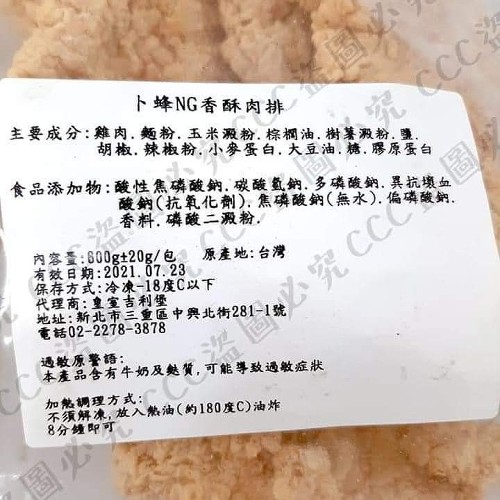 卜蜂NG香酥肉排
主要成分:雞肉.麵粉.玉米澱粉.棕櫚油.樹薯澱粉.鹽.
胡椒.辣椒粉.小麥蛋白.大豆油.糖.膠原蛋白
食品添加物:酸性焦磷酸鈉.碳酸氫鈉.多磷酸鈉.異抗壞血
酸鈉(抗氧化劑).焦磷酸鈉(無水).偏磷酸鈉.
香料.磷酸二澱粉.
內容量:600g±20g/包 原產地:台灣
有效日期:2021.07.23
保存方式:冷凍-18度C以下
代理商:皇室吉利堡
地址:新北市三重區中興北街281-1號
電話02-2278-3878
過敏原警語:
本產品含有牛奶及麩質,可能導致過敏症狀
加熱調理方式:
不須解凍,放入熱油(約180度C)油炸
8分鐘即可
CCC盜圖必究